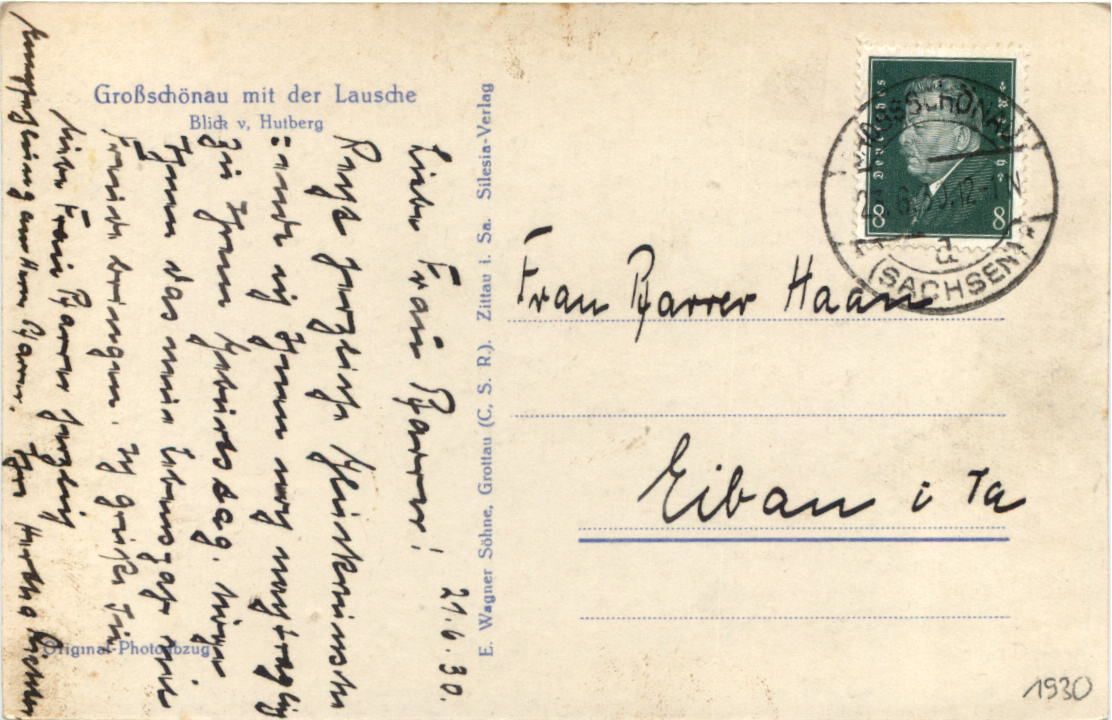 Großschönau mit der Lausche
Blick v, Hutberg
21.6.30.
Liebe Frau Pfarrer!
Recht herzliche Glückwünsche
sende ich Ihnen noch nachträglich
zu Ihrem Geburtstag. Möge
Ihnen das neue Lebensjahr nur
Freude bringen. Ich grüße Sie
liebe Frau Pfarrer herzlich
Herrn Pfarrer. Ihre
Original-Photoabzug
E. Wagner Söhne, Grottau (C. S. R.). Zittau i. Sa. Silesia-Verlag
Deutsches Reich
8 8
GROSSSCHÖNAU
(SACHSEN)
d
Frau Pfarrer Haan
Eibau i Sa
1930